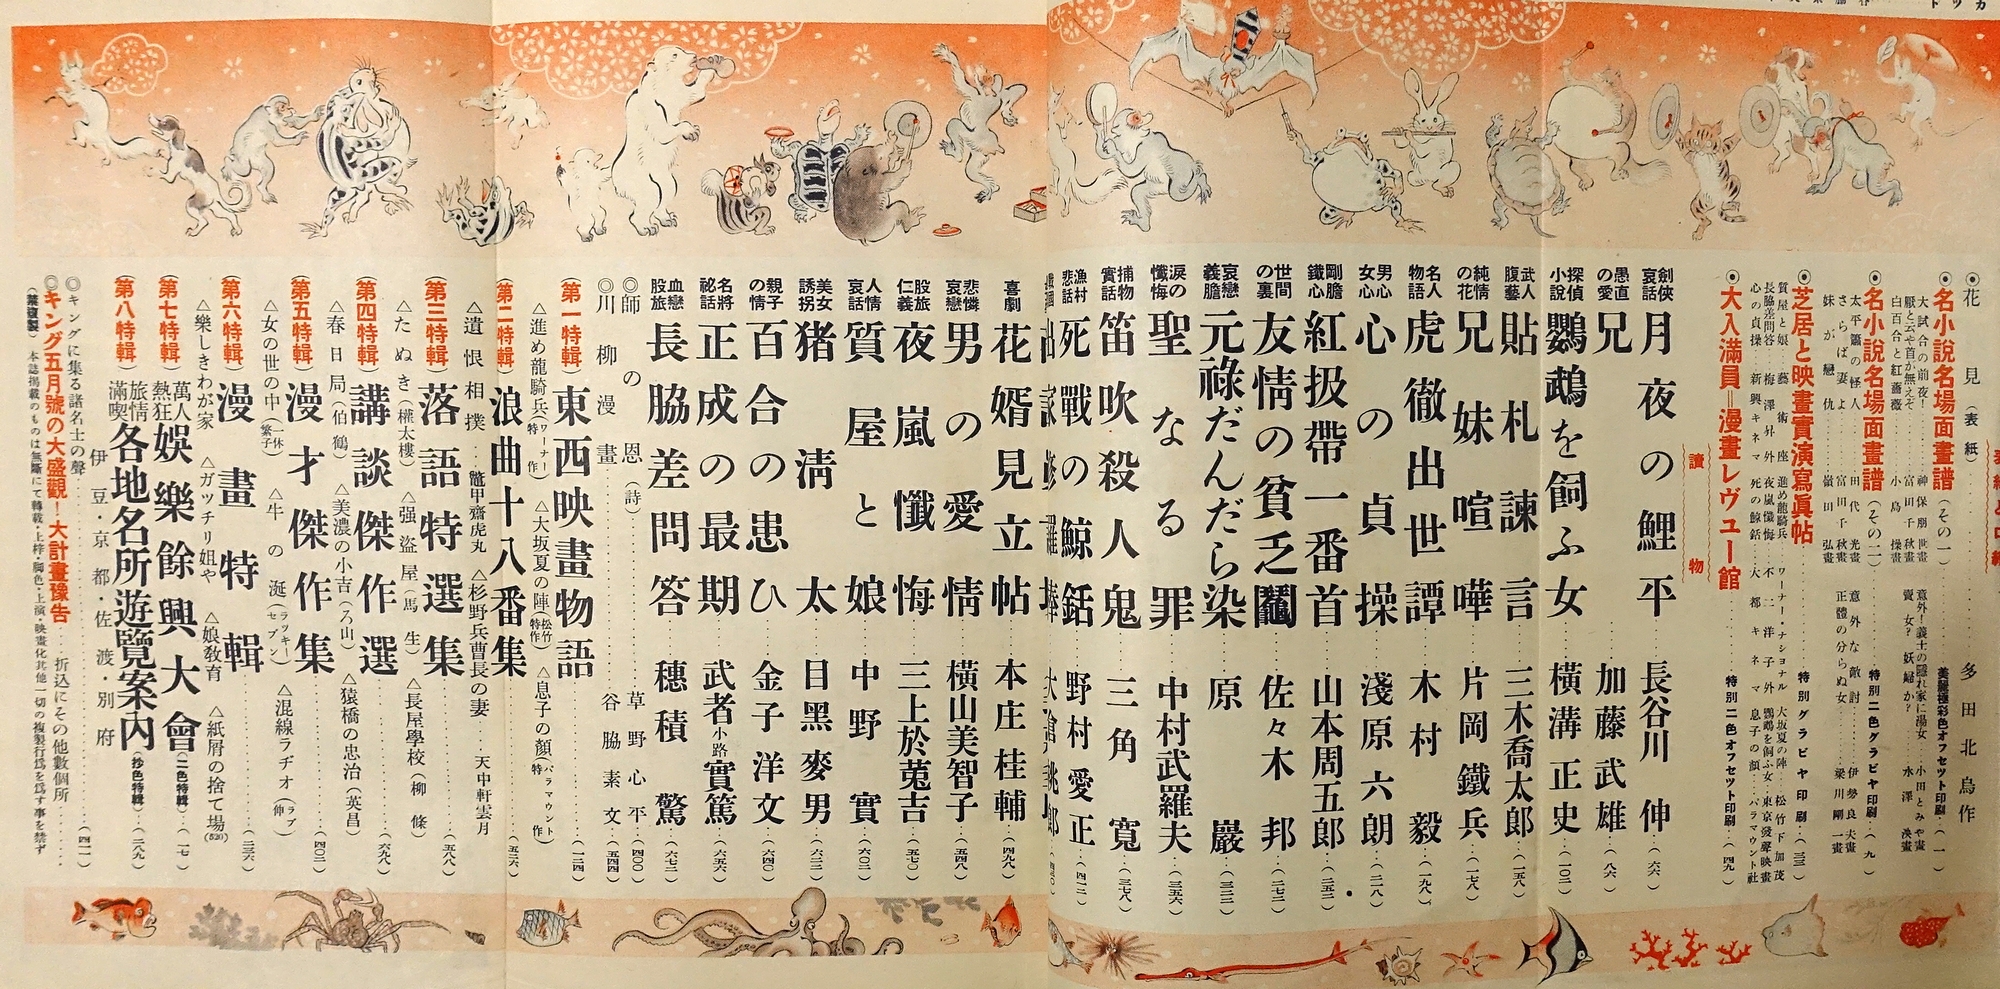 ◉花見（表紙）……多田北烏作
◉名小說名場面畫譜（その一）……美麗極彩色オフセツト印刷…（一）
大試合の前夜！……神保朋世畫
厭と云や首が無えぞ……富田千秋畫
白百合と紅薔薇……小島操畫
意外！義士の隱れ家に湯女…小田とみや畫
賣女？妖婦か？……水澤泱畫
◉名小說名場面畫譜（その二）……特別二色グラビヤ印刷…（九）
太平簫の怪人……田代光畫
さらば妻よ……富田千秋畫
妹が戀仇……嶺田弘畫
意外な敵討……伊勢良夫畫
正體の分らぬ女……梁川剛一畫
芝居と映畫實演寫眞帖……特別グラビヤ印刷…（三三）
質屋と娘……藝術座
長脇差問答……梅澤昇
心の貞操……新興キネマ
進め龍騎兵……ワーナー・ナショナル
夜嵐懺悔……不二洋子
死の鯨銛……大都キネマ
大坂夏の陣……松竹下加茂
鸚鵡を飼ふ女……東京發聲映畫
息子の顔……パラマウント社
◉大入滿員＝漫畫レヴユー館……特別二色オフセツト印刷…（四九）
讀物
劍俠哀話 月夜の鯉平……長谷川伸…（六六）
愚直の愛 兄……加藤武雄…（八六）
探偵小說 鸚鵡を飼ふ女……橫溝正史…（一〇二）
武人腹藝 貼札諫言……三木喬太郎…（一五八）
純情の花 兄妹喧嘩……片岡鐵兵…（一七八）
名人物語 虎徹出世譚……木村毅…（一九八）
男心女心 心の貞操……淺原六朗…（二一八）
剛膽鐵心 紅扱帶一番首……山本周五郎…（二五二）
世間の裏 友情の貧乏鬮……佐々木邦…（二七二）
哀戀義膽 元祿だんだら染……原巖…（三二二）
淚の懺悔 聖なる罪……中村武羅夫…（三五六）
捕物實話 笛吹殺人鬼……三角寬…（三七八）
漁村悲話 死戰の鯨銛……野村愛正…（四一二）
喜劇 花婿見立帖……本庄桂輔…（四九八）
悲憐哀戀 男の愛情……橫山美智子…（五四八）
股旅仁義 夜嵐懺悔……三上於菟吉…（五七〇）
人情哀話 質屋と娘……中野實…（六〇二）
美女誘拐 猪淸太……目黑麥男…（六二二）
親子の情 百合の患ひ……金子洋文…（六四〇）
名將祕話 正成の最期……武者小路實篤…（六五六）
血戀股旅 長脇差問答……穗積驚…（六七二）
◎師の恩（詩）……草野心平…（四〇〇）
◎川柳漫畫……谷脇素文…（五四四）
（第一特輯）東西映畫物語……（一二四）
△進め龍騎兵（ワーナー特作） △大坂夏の陣（松竹特作） △息子の顔（パラマウント特作）
（第二特輯）浪曲十八番集……（五二六）
△遺恨相撲…鼈甲齋虎丸 △杉野兵曹長の妻…天中軒雲月
（第三特輯）落語特選集……（五八八）
△たぬき（權太樓） △强盜屋（馬生） △長屋學校（柳條）
（第四特輯）講談傑作選……（六九八）
△春日局（伯鶴） △美濃の小吉（ろ山） △猿橋の忠治（英昌）
（第五特輯）漫才傑作集……（四〇二）
△女の世の中（一休・繁子） △牛の涎（ラツキー・セブン） △混線ラヂオ（ラブ・伸）
（第六特輯）漫畫特輯……（二三六）
△樂しきわが家 △ガツチリ姐や △娘敎育 △紙屑の捨て場（520）
（第七特輯）萬人熱狂 娛樂餘興大會（二色特輯）…（一七）
（第八特輯）旅情滿喫 各地名所遊覽案內（抄色特輯）…（二八九）
伊豆・京都・佐渡・別府
◎キングに集る諸名士の聲……（四二一）
◎キング五月號の大盛觀！大計畫豫告……折込にその他數個所
（禁複製）本誌揭載のものは無斷にて轉載・上梓・脚色・上演・映畫化其他一切の複製行爲を爲す事を禁ず